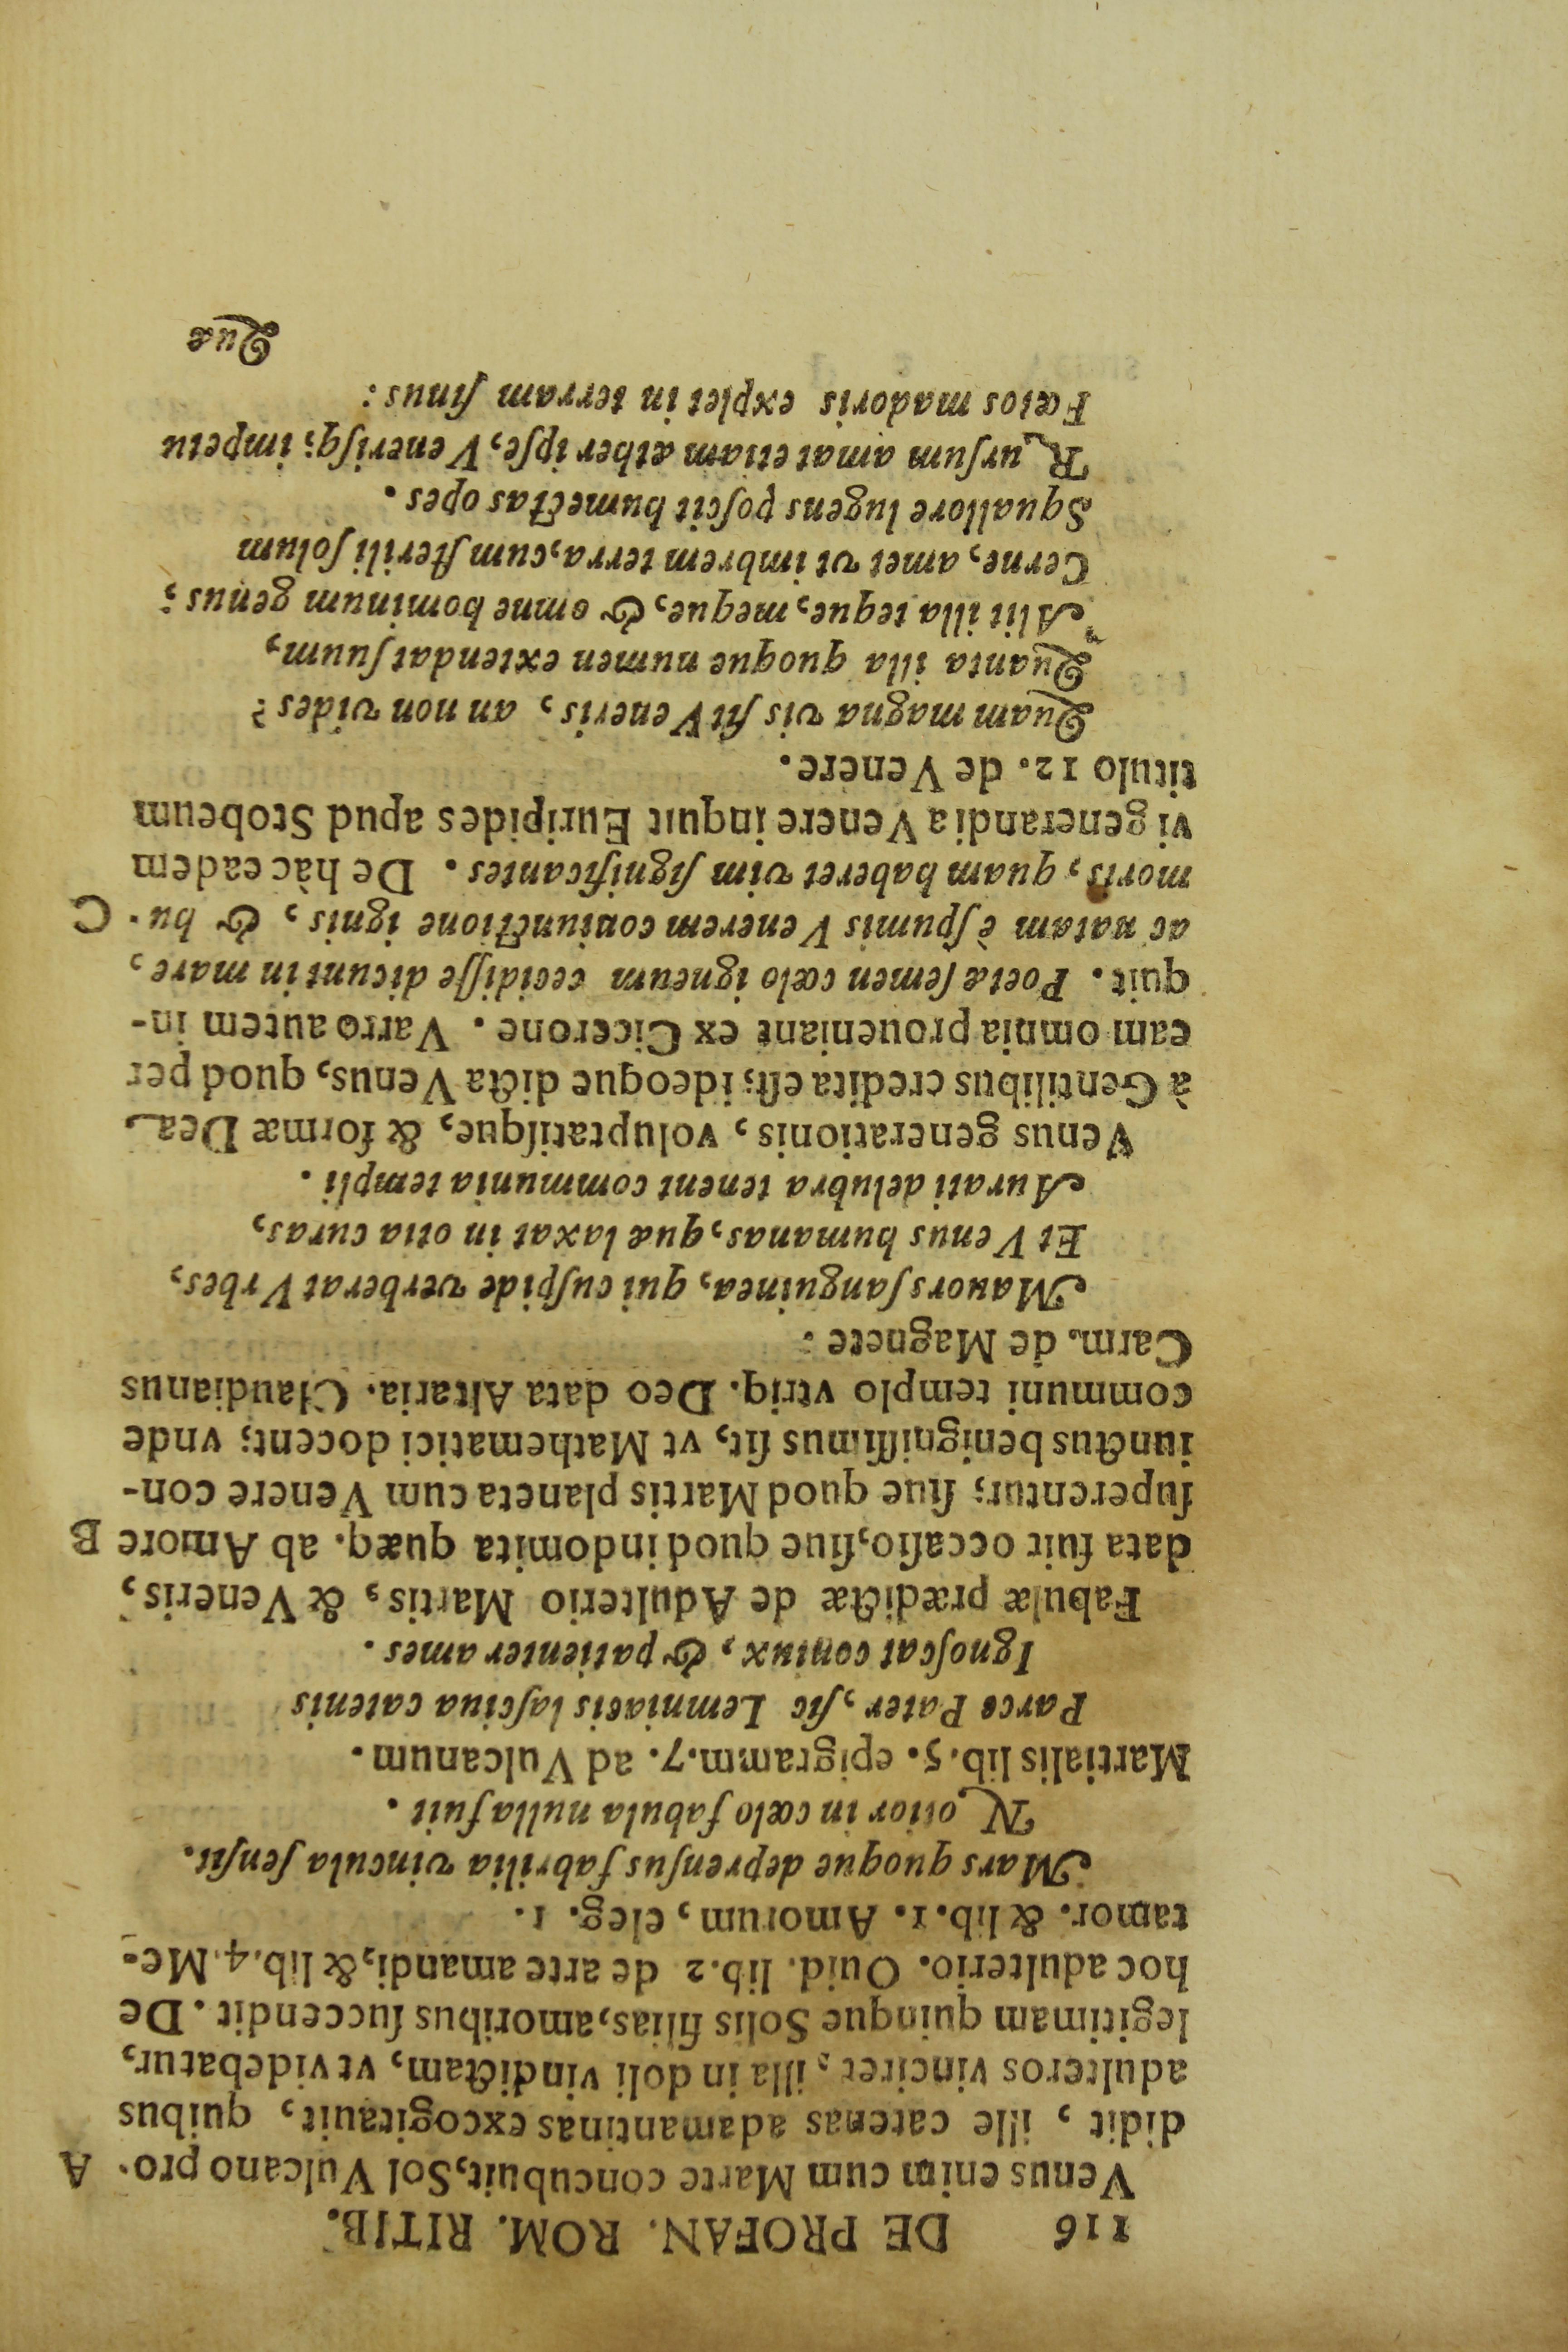 116 DE PROFAN. ROM. RITIB.
Venus enim cum Marte concubuit, Sol Vulcano pro- A
didit, ille catenas adamantinas excogitauit, quibus
adulteros vinciret, illa in doli vindictam, vt videbatur,
legitimam quinque Solis filias, amoribus ſuccendit. De
hoc adulterio. Ouid. lib. 2 de arte amandi, & lib. 4. Me-
tamor. & lib. 1. Amorum, eleg. 1.
Mars quoque deprenſus fabrilia vincula ſenſit.
Notior in cœlo fabula nulla fuit.
Martialis lib. 5. epigramm. 7. ad Vulcanum.
Parce Pater, ſic Lemniacis laſciua catenis
Ignoſcat coniux, & patienter ames.
Fabulæ prædictæ de Adulterio Martis, & Veneris,
data fuit occaſio, ſiue quod indomita quæq. ab Amore B
ſuperentur; ſiue quod Martis planeta cum Venere con-
iunctus benigniſſimus ſit, vt Mathematici docent; vnde
communi templo vtriq. Deo data Altaria. Claudianus
Carm. de Magnete:
Mauors ſanguinea, qui cuſpide verberat Vrbes,
Et Venus humanas, quæ laxat in otia curas,
Aurati delubra tenent communia templi.
Venus generationis, voluptatiſque, & formæ Dea
à Gentilibus credita eſt; ideoque dicta Venus, quod per
eam omnia proueniant ex Cicerone. Varro autem in-
quit. Poetæ ſemen cœlo igneum cecidiſſe dicunt in mare,
ac natam è ſpumis Venerem coniunctione ignis, & hu- C
moris, quam haberet vim ſignificantes. De hàc eadem
vi generandi a Venere inquit Euripides apud Stobeum
titulo 12. de Venere.
Quam magna vis ſit Veneris, an non vides?
Quanta illa quoque numen extendat ſuum,
Alit illa teque, meque, & omne hominum genus;
Cerne, amet vt imbrem terra, cum ſterili ſolum
Squallore lugens poſcit humectas opes.
Rurſum amat etiam æther ipſe, Veneriſq; impetu
Fœtos madoris explet in terram ſinus:
Quæ